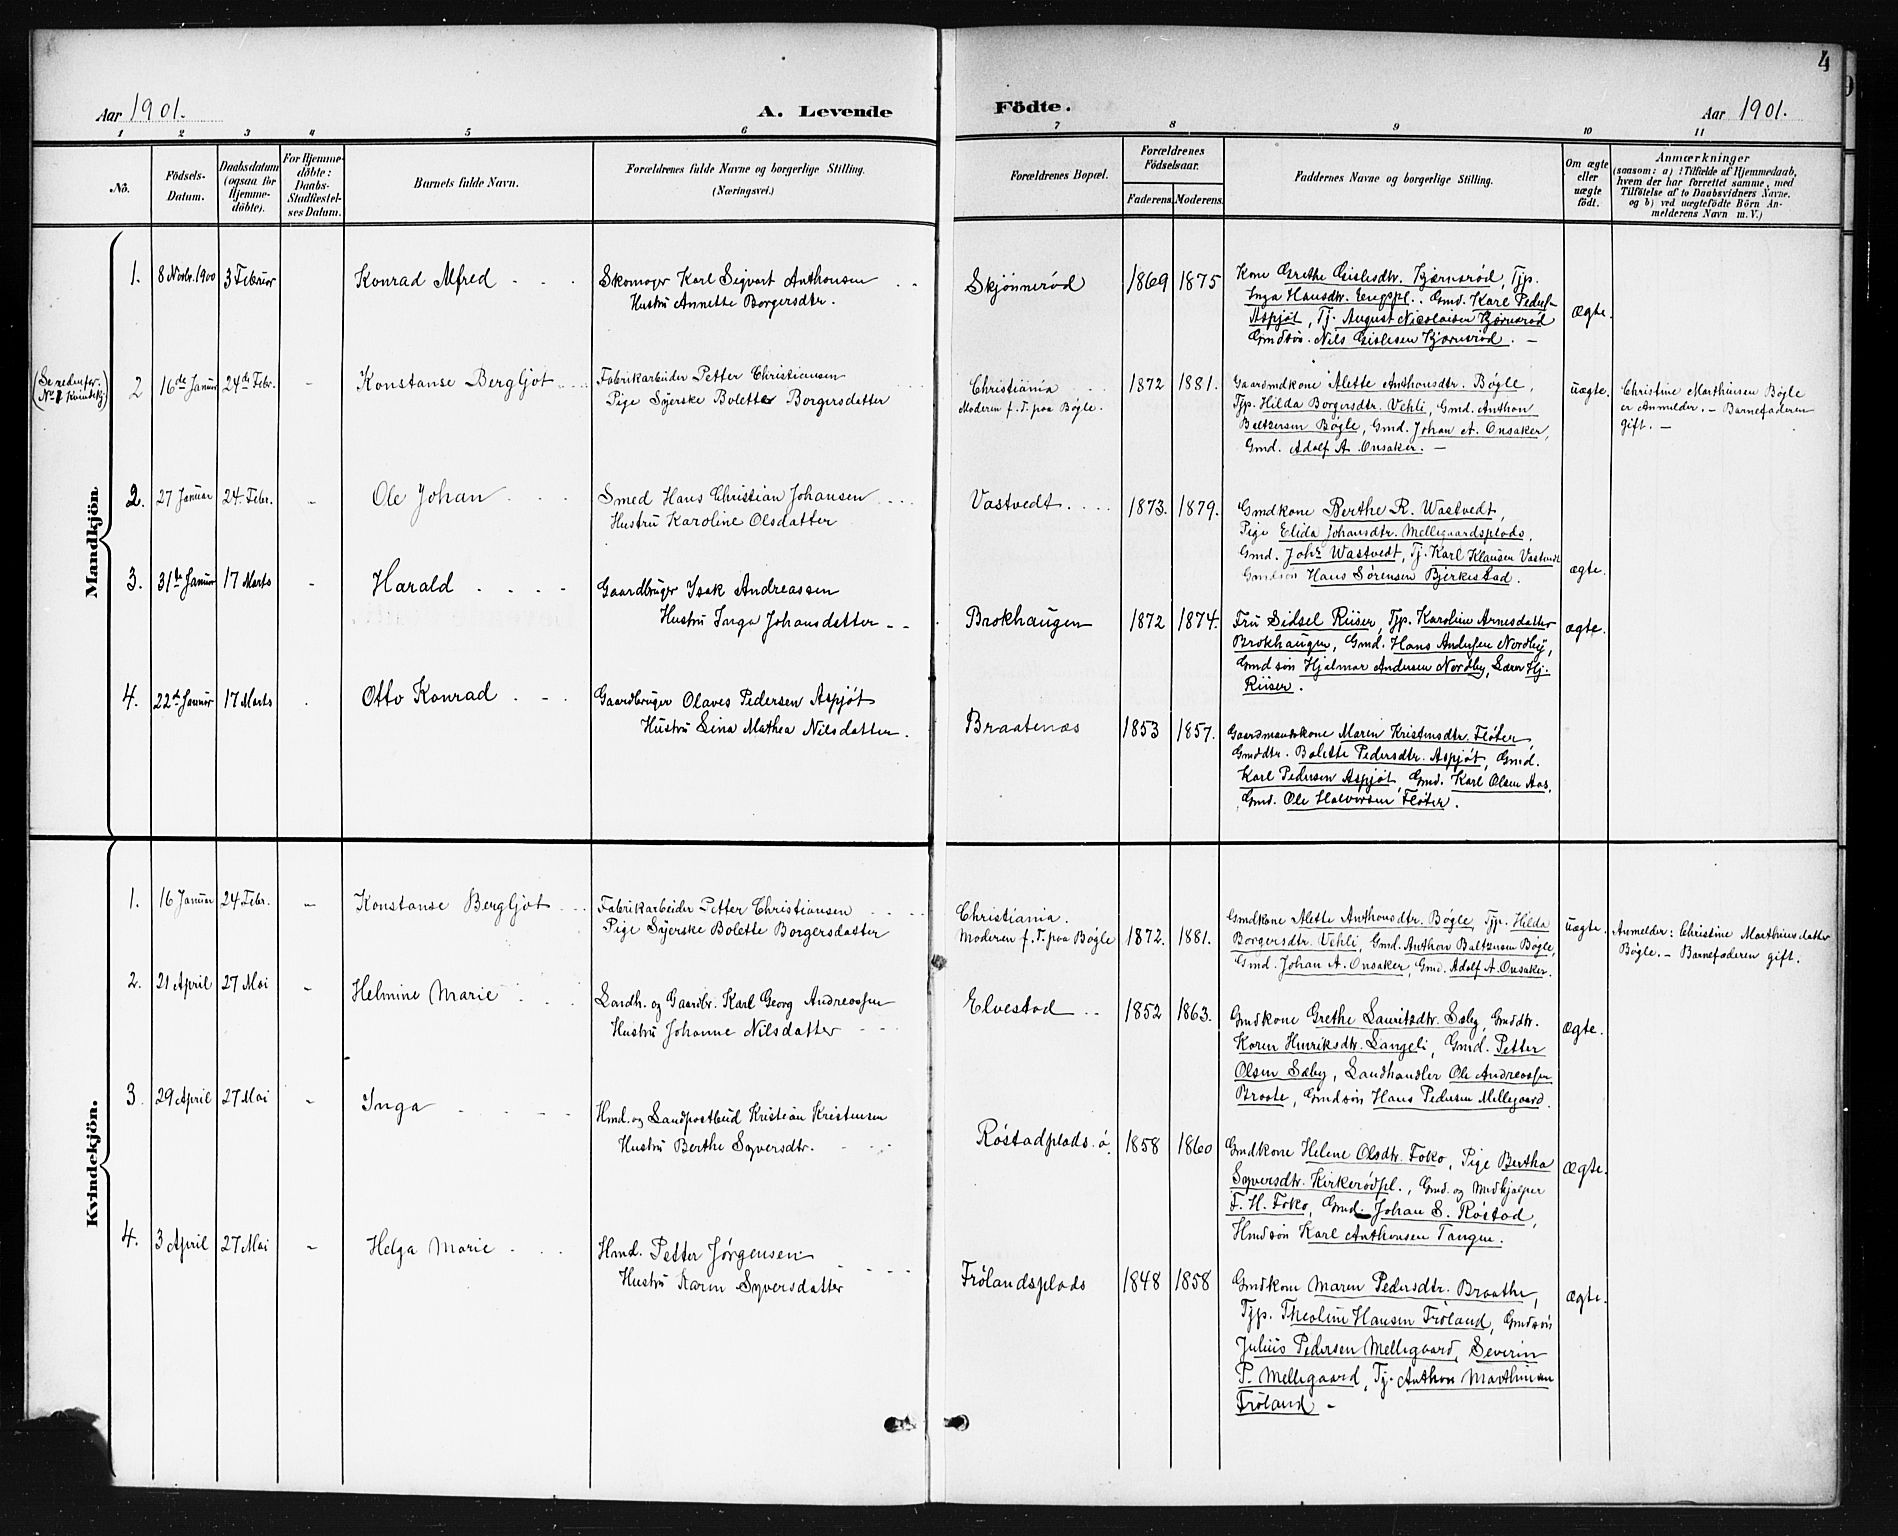 4
Aar 1901.
A. Levende
Födte.
Aar 1901.
1 2 3 4 5 6 7 8 9 10 11
No.
Födsels-
Datum.
Daabsdatum
(ogsaa for
Hjemme-
döbte).
For Hjemme-
döbte:
Daabs-
Stadfæstel-
ses Datum.
Barnets fulde Navn.
Forældrenes fulde Navne og borgerlige Stilling.
(Næringsvei.)
Forældrenes Bopæl.
Forældrenes
Födselsaar.
Faderens. Moderens.
Faddernes Navne og borgerlige Stilling.
Om ægte
eller
uægte
födt.
Anmærkninger
(saasom: a) i Tilfælde af Hjemmedaab,
hvem der har forrettet samme, med
Tilföielse af to Daabsvidners Navne,
og b) ved uægtefödte Börn An-
melderens Navn m. V.)
Mandkjön
1. 8 Novbr. 1900 3 Februar Konrad Alfred
Skomager Karl Sigvart Anthonsen
Hustru Annette Borgersdtr.
Skjønnerød 1869 1875
Kone Grethe Gislesdtr. Kjærnsrød, Tjp.
Inga Hansdtr. Engspl., Gmd. Karl Peders.
Aspjøt, Tj. August Nicolaisen Kjørnsrød
Gmdsön. Nils Gislesen Kjærnsrød. –
ægte.
(Se nedenfor
No 1 Kvindekj.)
2 16de Januar 24de Febr. – Konstanse Bergljot
Fabrikarbeider Petter Christiansen
Pige Syerske Bolette Borgersdatter
Christiania
Moderen f. T. paa Bøgle.
1872 1881.
Gaardmdkone Alette Anthonsdtr. Bøgle,
Tjp. Hilda Borgersdtr. Vehli, Gmd. Anthon
Baltzersen Bøgle, Gmd. Johan A. Onsaker,
Gmd. Adolf A. Onsaker. –
uægte.
Christine Marthinsen Bøgle
er Anmelder. – Barnefaderen
gift. –
2. 27 Januar 24. Febr. – Ole Johan
Smed Hans Christian Johansen
Hustru Karoline Olsdatter
Vastvedt 1873. 1879.
Gmdkone Berthe R. Wastvedt,
Pige Elida Johansdtr. Mellegaardsplads,
Gmd. Johs. Wastvedt, Tj. Karl Klausen Vastvedt
Gmdsön Hans Sörensen Bjerkestad.
ægte.
3. 31te Januar 17 Marts – Harald
Gaardbruger Isak Andreassen
Hustru Inga Johansdatter
Brokhaugen 1872 1874.
Fru Sidsel Riiser, Tjp. Karoline Arnesdatter
Brokhaugen, Gmd. Hans Andersen Nordby,
Gmdsön Hjalmar Andersen Nordby, Lærer Hj.
Riiser.
ægte.
4. 22de Januar 17 Marts Otto Konrad
Gaardbruger Olaves Pedersen Aspjøt
Hustru Lina Mathea Nilsdatter.
Braatenæs 1853 1857.
Gaardmandskone Maren Kristensdtr. Fløter,
Gmddtr. Bolette Pedersdtr. Aspjøt, Gmd.
Karl Pedersen Aspjøt, Gmd. Karl Olsen Aas,
Gmd. Ole Halvorsen Fløter.
Kvindekjön.
1. 16 Januar 24 Febr. – Konstanse Bergljot
Fabrikarbeider Petter Christiansen
Pige Syerske Bolette Borgersdatter
Christiania.
Moderen f. T. paa Bøgle
1872. 1881.
Gmdkone Alette Anthonsdtr. Bøgle, Tjp. Hilda
Borgersdtr. Vehli, Gmd. Anthon Baltzersen Bøgle,
Gmd. Johan A. Onsaker, Gmd. Adolf A. Onsaker.
uægte.
Anmelder: Christine Marthinsdatter
Bøgle. – Barnefaderen gift.
2. 21 April 27 Mai – Helmine Marie
Landh. og Gaardbr. Karl Georg Andreassen
Hustru Johanne Nilsdatter
Elvestad 1852 1863.
Gmdkone Grethe Lauritzdtr. Sæby, Gmddtr.
Karen Henriksdtr. Langeli, Gmd. Petter
Olsen Sæby, Landhandler Ole Andreassen
Braate, Gmdsön Hans Pedersen Mellegaard.
ægte.
3. 29 April 27 Mai – Inga
Hmd. og Landpostbud Kristian Kristensen
Hustru Berthe Syversdtr.
Røstadplads ö. 1858 1860
Gmdkone Helene Olsdtr. Foko, Pige Bertha
Syversdtr. Kirkerødpl., Gmd. og Medhjælper
F. H. Foko, Gmd. Johan S. Røstad,
Hmdsön Karl Anthonsen Tangen.
ægte.
4. 3 April 27 Mai – Helga Marie
Hmd. Petter Jørgensen
Hustru Karen Syversdatter
Frölandsplads 1848 1858
Gmdkone Maren Pedersdtr. Braathe,
Tjp. Theoline Hansen Fröland, Gmdsön
Julius Pedersen Mellegaard, Severin
P. Mellegaard, Tj. Anthon Marthinsen
Fröland –
ægte.